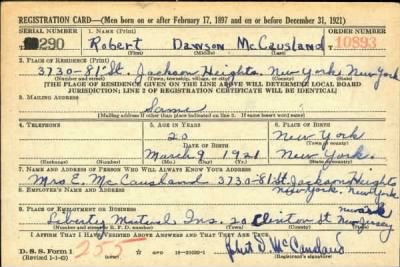 REGISTRATION CARD—(Men born on or after February 17, 1897 and on or before December 31, 1921)
SERIAL NUMBER 1. NAME (Print) ORDER NUMBER
290 Robert Dawson McCausland 10893
(First) (Middle) (Last)
2. PLACE OF RESIDENCE (Print)
3730-81 St. Jackson Heights. New York New York
(Number and street) (Town, township, village, or city) (County) (State)
[THE PLACE OF RESIDENCE GIVEN ON THE LINE ABOVE WILL DETERMINE LOCAL BOARD
JURISDICTION; LINE 2 OF REGISTRATION CERTIFICATE WILL BE IDENTICAL]
3. MAILING ADDRESS
Same
[Mailing address if other than place indicated on line 2. If same insert word same]
4. TELEPHONE 5. AGE IN YEARS 6. PLACE OF BIRTH
20 New York
DATE OF BIRTH (Town or county)
March 9 1921 New York.
(Exchange) (Number) (Mo.) (Day) (Yr.) (State or country)
7. NAME AND ADDRESS OF PERSON WHO WILL ALWAYS KNOW YOUR ADDRESS
Mrs E. McCausland 3730-81 St. Jackson Heights
New York. New York
8. EMPLOYER'S NAME AND ADDRESS
9. PLACE OF EMPLOYMENT OR BUSINESS Newark
Liberty Mutual Ins. 20 Clinton St New Jersey
(Number and street or R. F. D. number) (Town) (County) (State)
I AFFIRM THAT I HAVE VERIFIED ABOVE ANSWERS AND THAT THEY ARE TRUE.
D. S. S. Form 1
(Revised 1-1-42) (over)
255
Robert D. McCausland